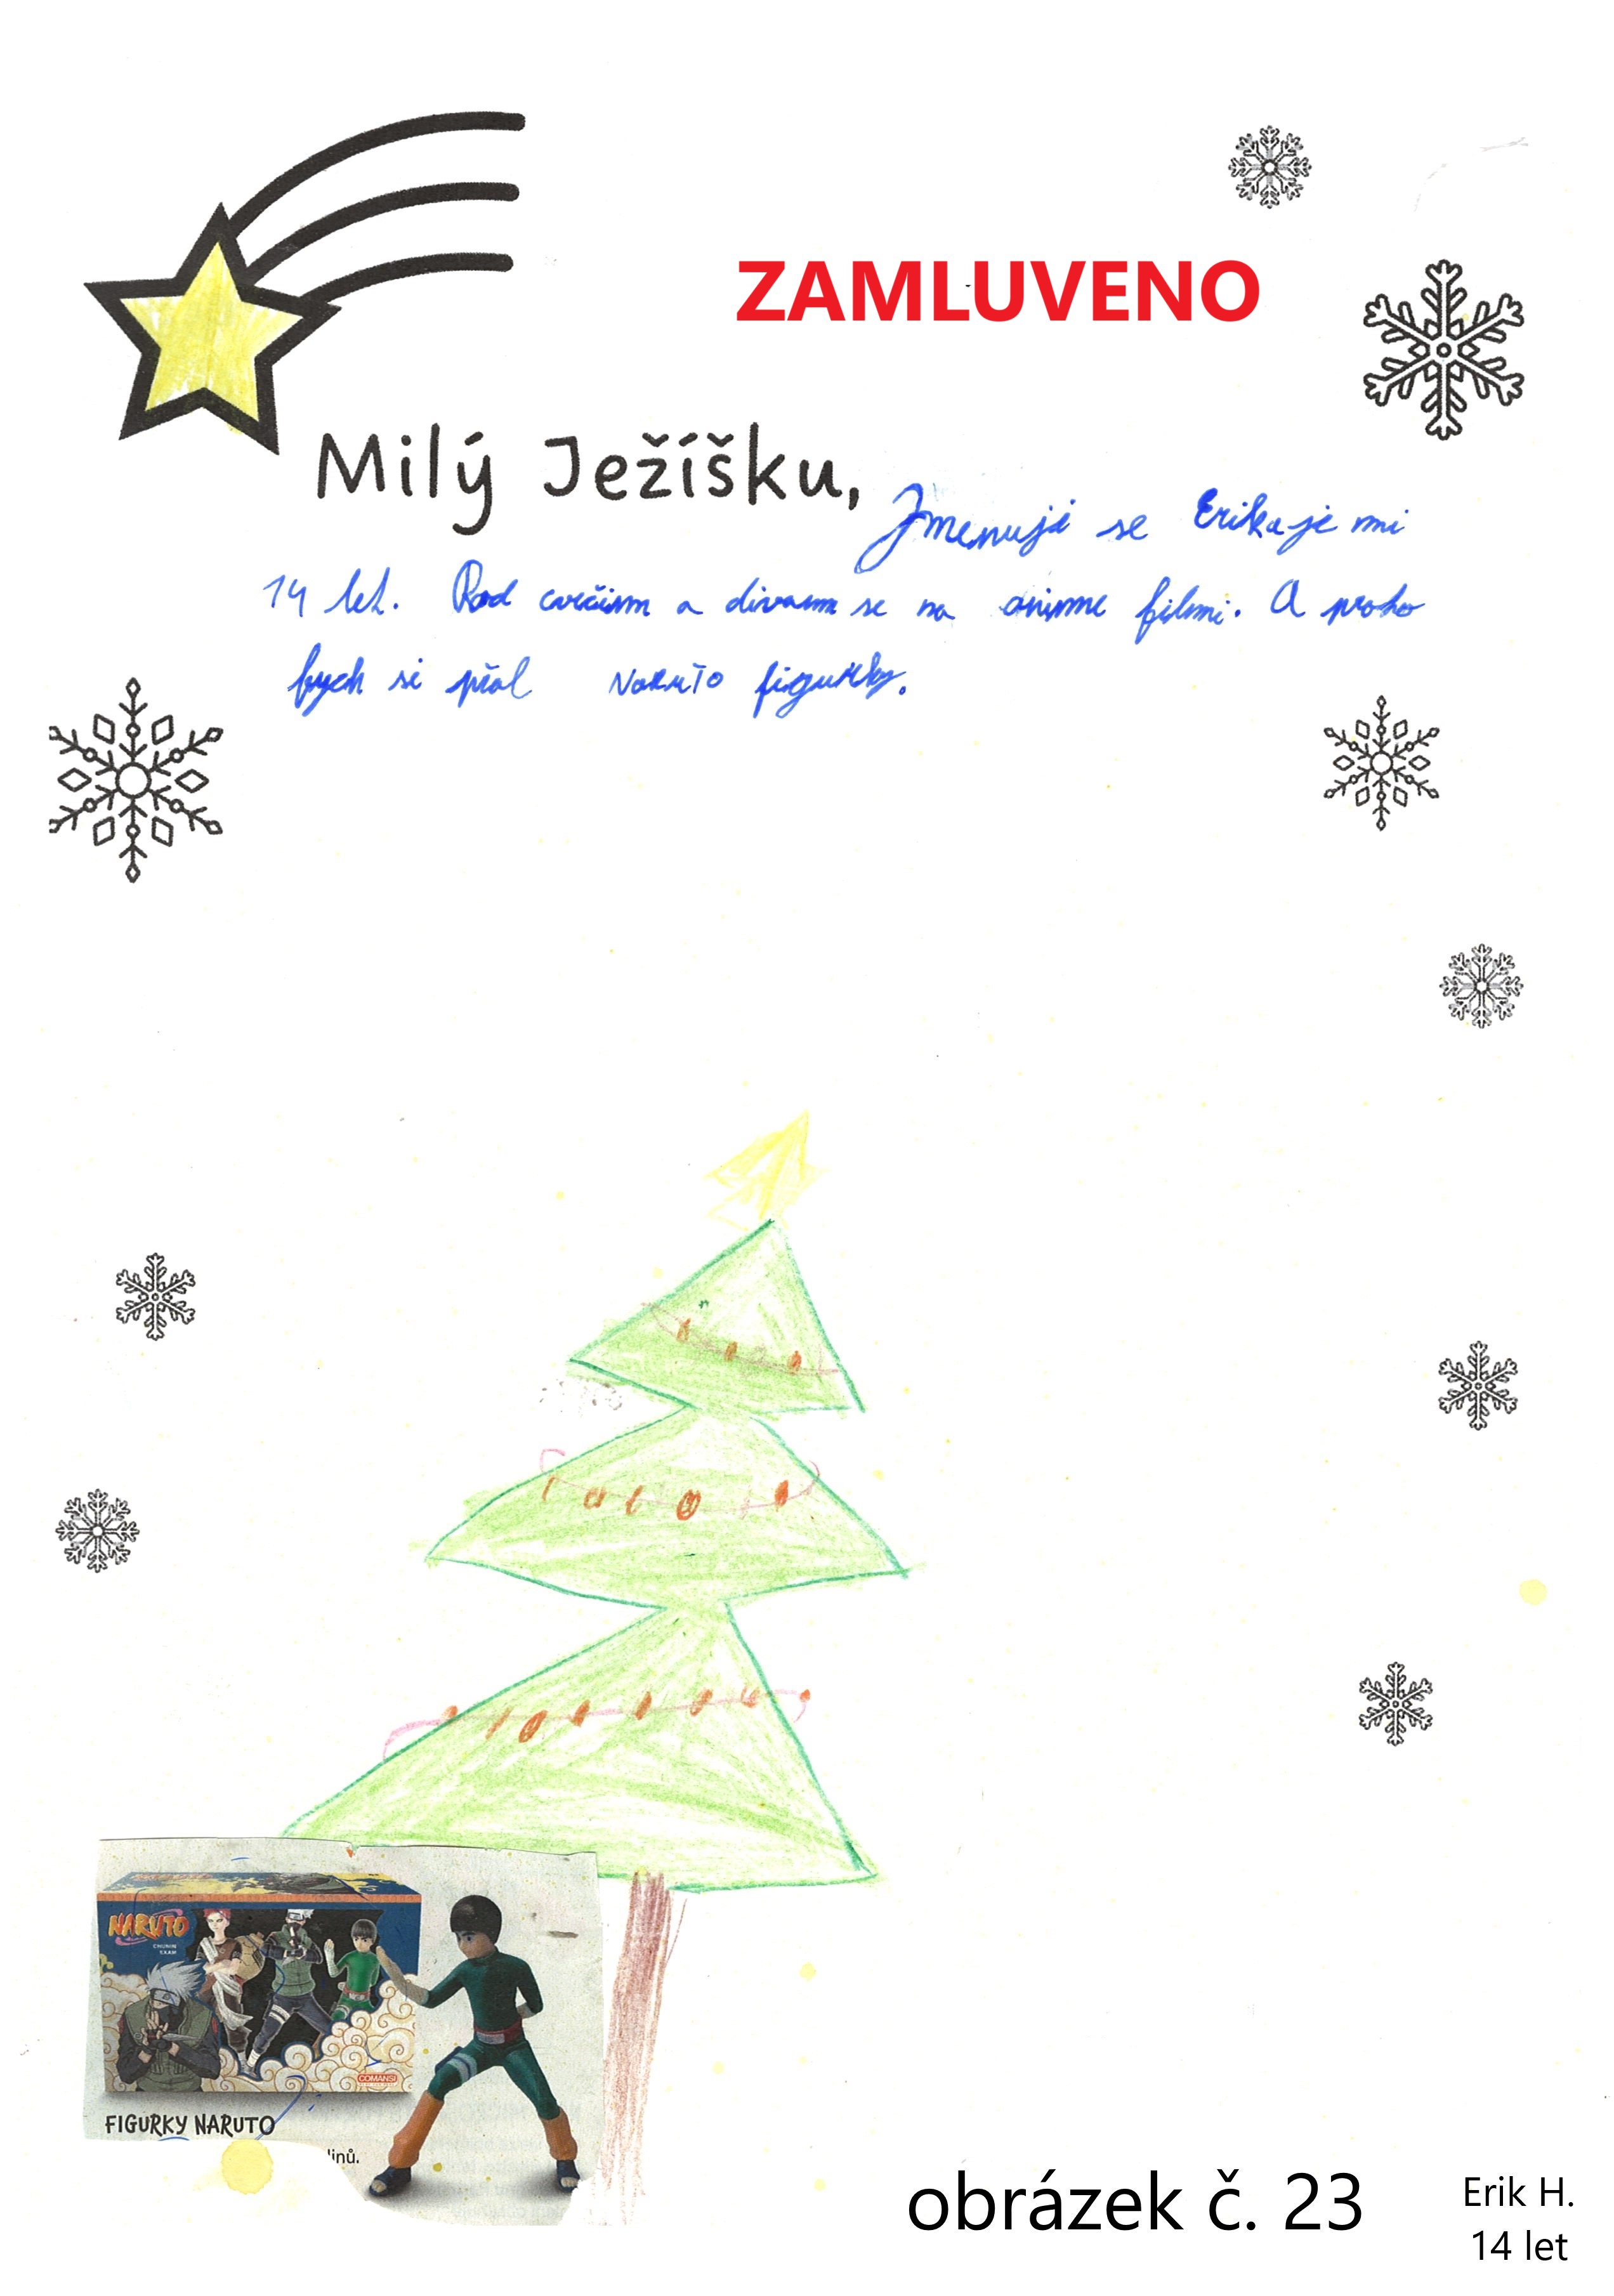 ZAMLUVENO
Milý Ježíšku, Jmenuji se Erik a je mi
14 let. Rad cvičim a divam se na anime filmi. A proto
bych si přal Naruto figurky.
NARUTO
CHUNIN
EXAM
COMANSI
FIGURKY NARUTO
linů.
obrázek č. 23
Erik H.
14 let